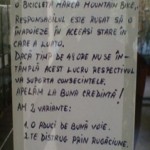 O BICICLETĂ MARCA MOUNTAIN BIKE,
RESPONSABILUL ESTE RUGAT SĂ O
ÎNAPOIEZE ÎN ACEEAȘI STARE ÎN
CARE A LUAT-O.
DACĂ TIMP DE 48 ORE NU SE ÎN-
TÂMPLĂ ACEST LUCRU RESPECTIVUL
VA SUPORTA CONSECINȚELE.
APELĂM LA BUNA CREDINȚĂ!
AM 2 VARIANTE:
1. O ADUCI DE BUNĂ VOIE.
2. TE DISTRUG PRIN RUGĂCIUNE.